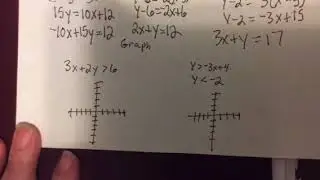 15y=10x+12
-10x+15y=12
y-6=-2x+6
2x+y=12
y-2=-3x+15
3x+y=17
Graph
3x+2y>6
y>-3x+4
y<-2